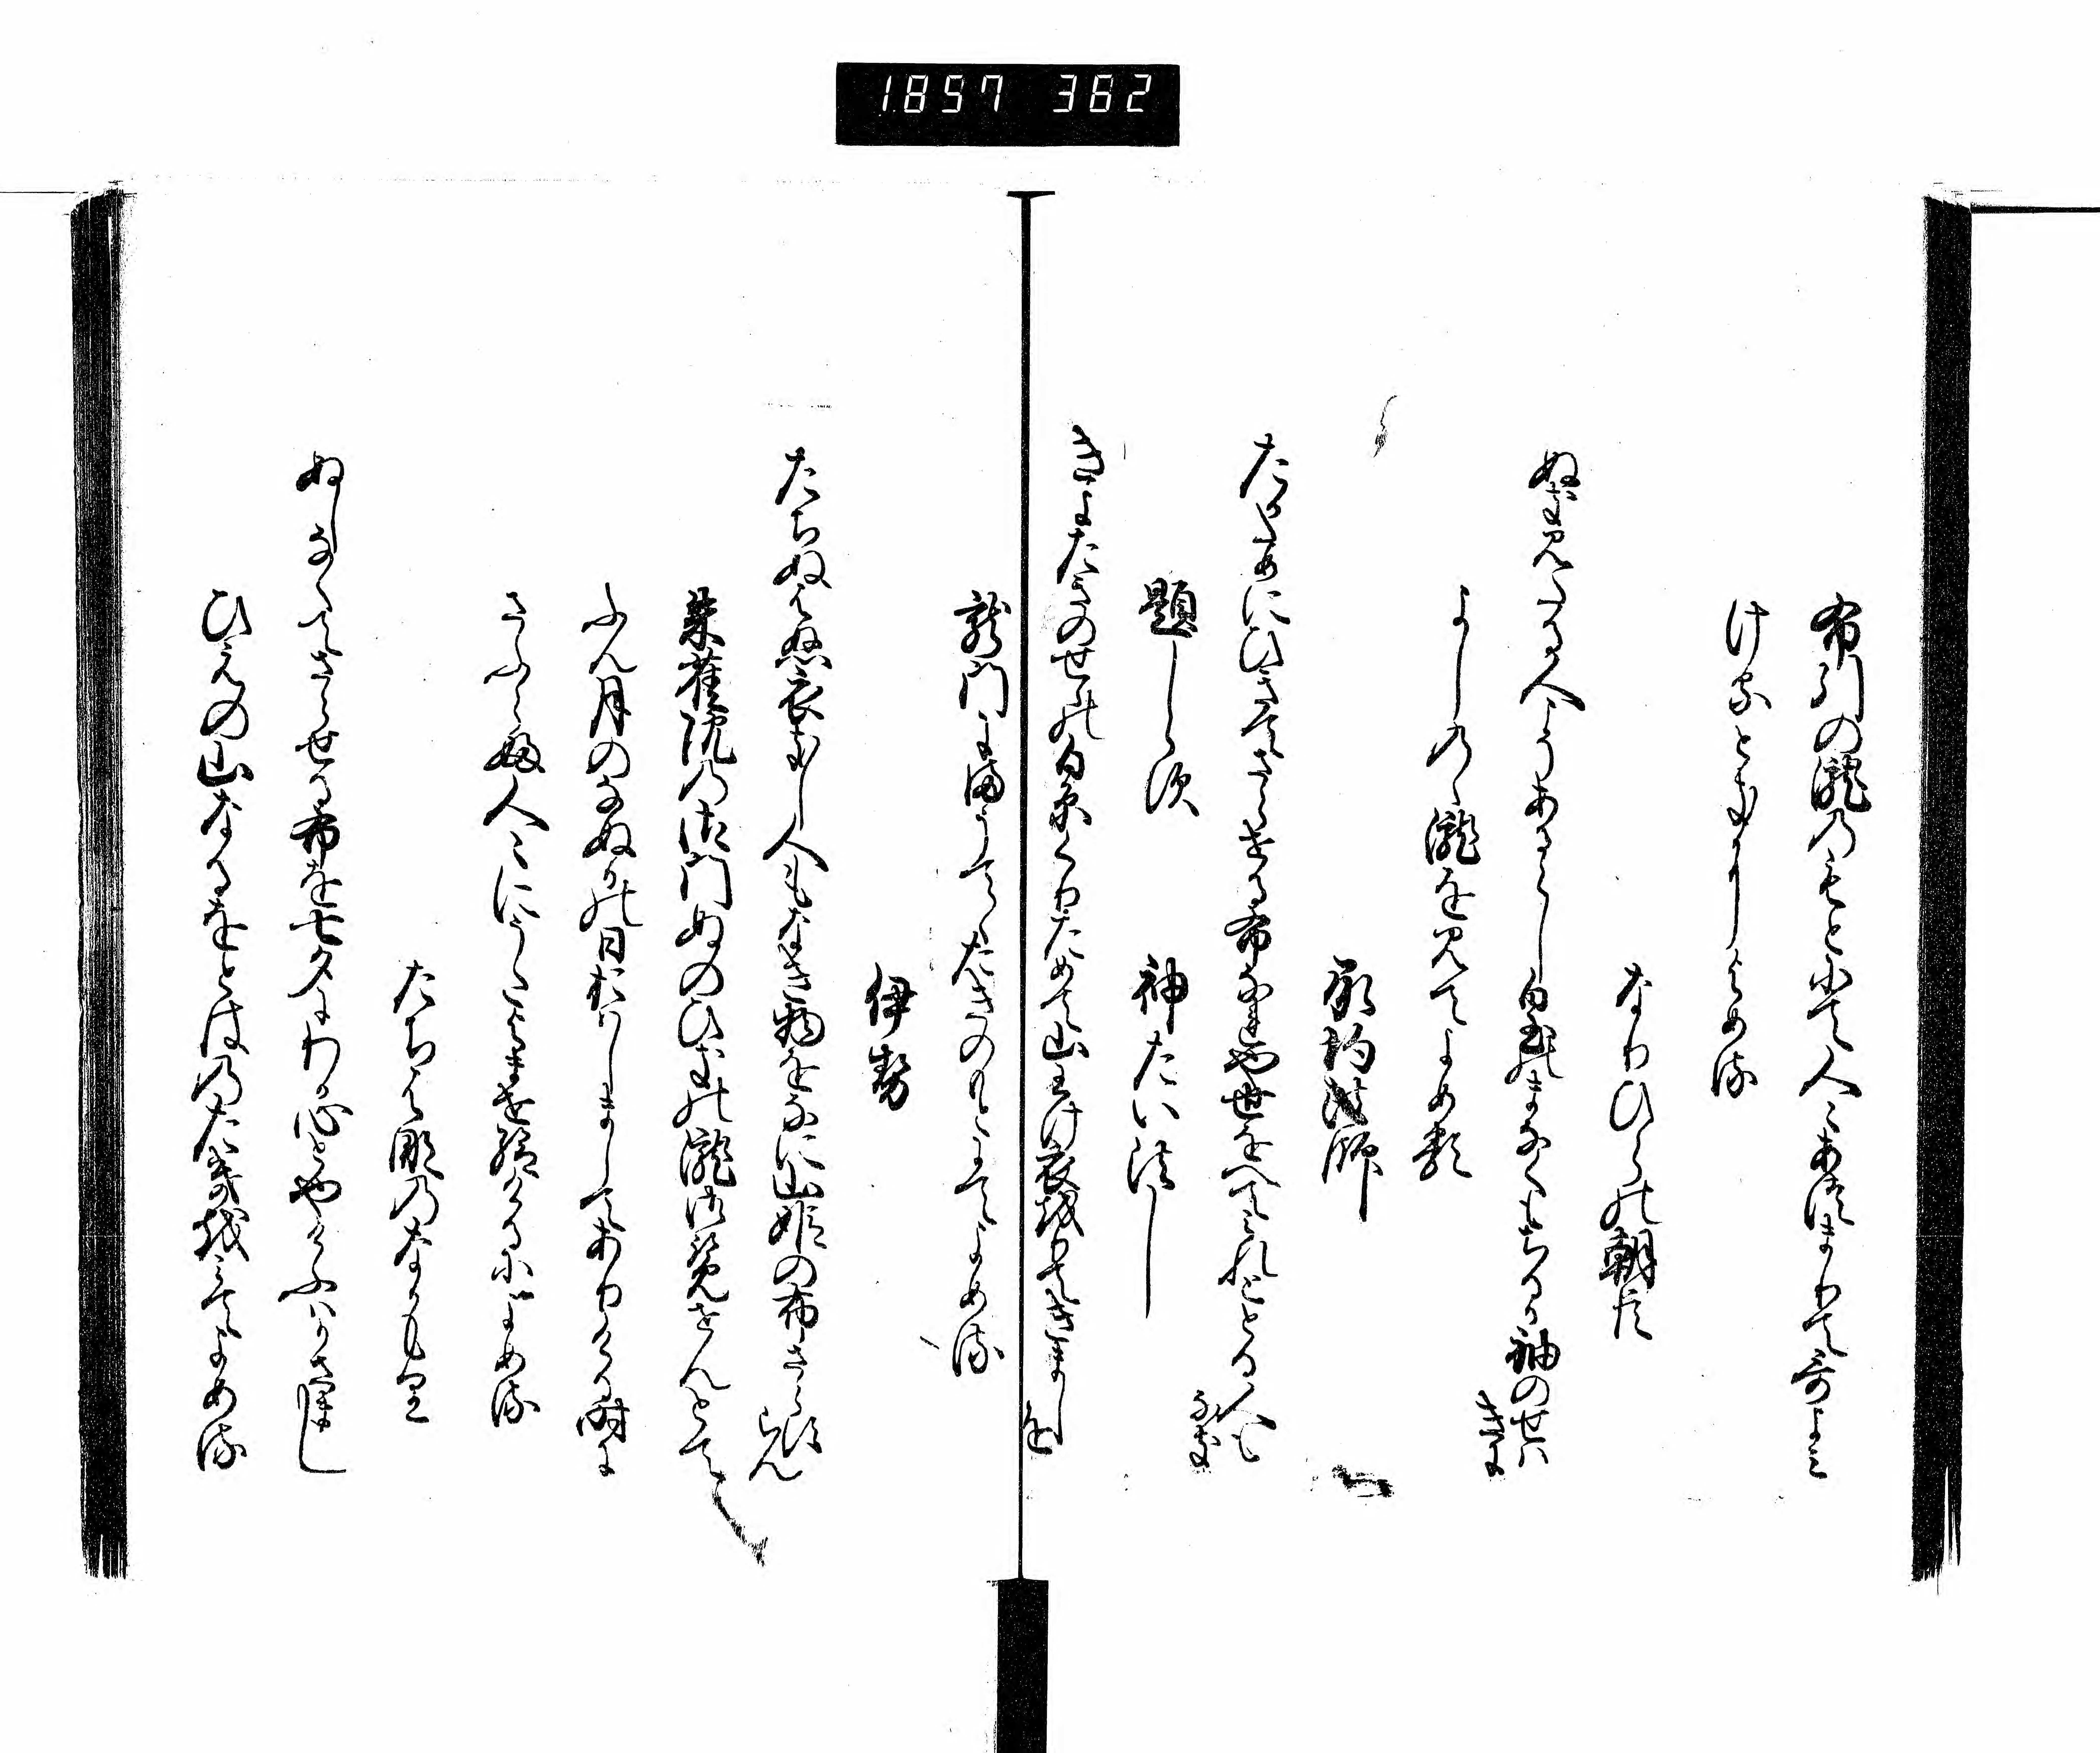 1857 362
布引の瀧のもとにて人々あつまりて哥よみ
ける時によめる
なりひらの朝臣
ぬきみたる人こそあるらし白玉のまなくもちるか袖のせはきに
よしのゝ瀧を見てよめる
承均法師
たかためにひきてさらせる布なれや世をへてみれととる人もなき
題しらす
神たい法し
きよたきのせゝの白糸くりためて山わけ衣をりてきましを
龍門にまうてゝたきのもとにてよめる
伊勢
たちぬはぬ衣きし人もなき物をなに山姫の布さらすらん
朱雀院の御門ぬのひきの瀧御覧せんとて
ふん月のなぬかの日おはしましてありける時に
さふらふ人々にうたよませ給けるによめる
たちはなのなかもり
ぬしなくてさらせる布を七夕にわか心とやけふはかさまし
ひえの山なるをとはのたきを見てよめる